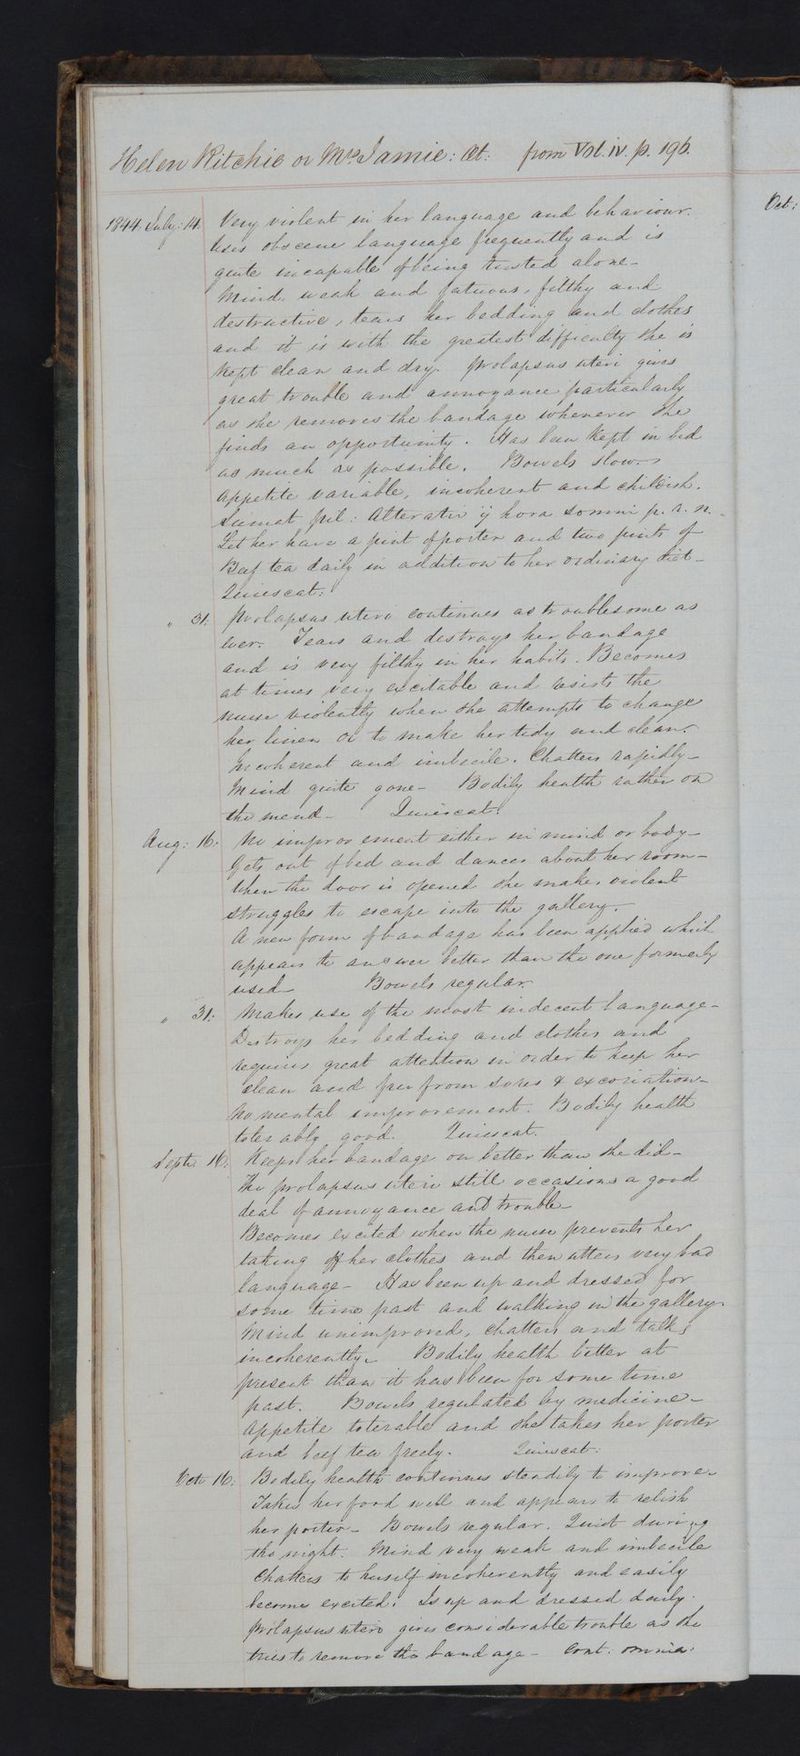 Helen Ritchie or Mrs Jamie: Æt: from Vol. iv. p. 196.
1844. July: 14. Very violent in her language and behaviour.
Uses obscene language frequently and is
quite incapable of being trusted alone_
Mind, weak and fatuous, filthy and
destructive, tears her bedding and clothes
and it is with the greatest difficulty she is
kept clean and dry. Prolapsus uteri gives
great trouble and annoyance particularly
as she removes the bandage whenever she
finds an opportunity. Has been kept in bed
as much as possible. Bowels slow_
appetite variable, incoherent and childish.
Sumat pil: Alterativ ij hora somni p. r. n.
Let her have a pint of porter and two pints of
Beef tea daily in addition to her ordinary diet_
Quiescat.
" 31. Prolapsus uteri continues as troublesome as
ever. Tears and destroys her bandage
and is very filthy in her habits. Becomes
at times very excitable and resists the
nurse violently when she attempts to change
her linen or to make her tidy and clean.
Incoherent and imbecile. Chatters rapidly_
Mind quite gone_ Bodily health rather on
the mend_ Quiescat.
Aug: 16. No improvement either in mind or body_
Gets out of bed and dances about her room_
When the door is opened she makes violent
struggles to escape into the gallery_
A new form of bandage has been applied which
appears to answer better than the one formerly
used_ Bowels regular
" 31. Makes use of the most indecent language_
Destroys her bedding and clothes and
requires great attention in order to keep her
clean and free from sores & excoriation_
No mental improvement. Bodily health
tolerably good. Quiescat.
Septr 16. Keeps her bandage on better than she did_
The prolapsus uteri still occasions a good
deal of annoyance and trouble_
Becomes excited when the nurse prevents her
taking off her clothes and then utters very bad
language_ Has been up and dressed for
some time past and walking in the gallery_
Mind unimproved, chatters and talks
incoherently_ Bodily health better at
present than it has been for some time
past. Bowels regulated by medicine_
Appetite tolerable and she takes her porter
and beef tea freely. Quiescat.
Oct. 16. Bodily health continues steadily to improve_
Takes her food well and appears to relish
her porter_ Bowels regular. Quiet during
the night. Mind very weak and imbecile
Chatters to herself incoherently and easily
becomes excited. Is up and dressed daily.
Prolapsus uteri gives considerable trouble as she
tries to remove the bandage_ Cont. omnia.
Oct: